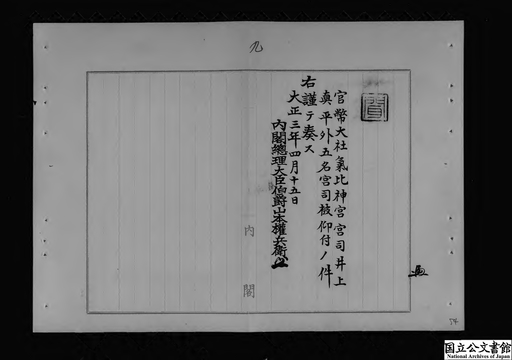 九
官幣大社氣比神宮宮司井上
眞平外五名宮司被仰付ノ件
右謹テ奏ス
大正三年四月十五日
内閣總理大臣伯爵山本權兵衛
内閣
国立公文書館
National Archives of Japan